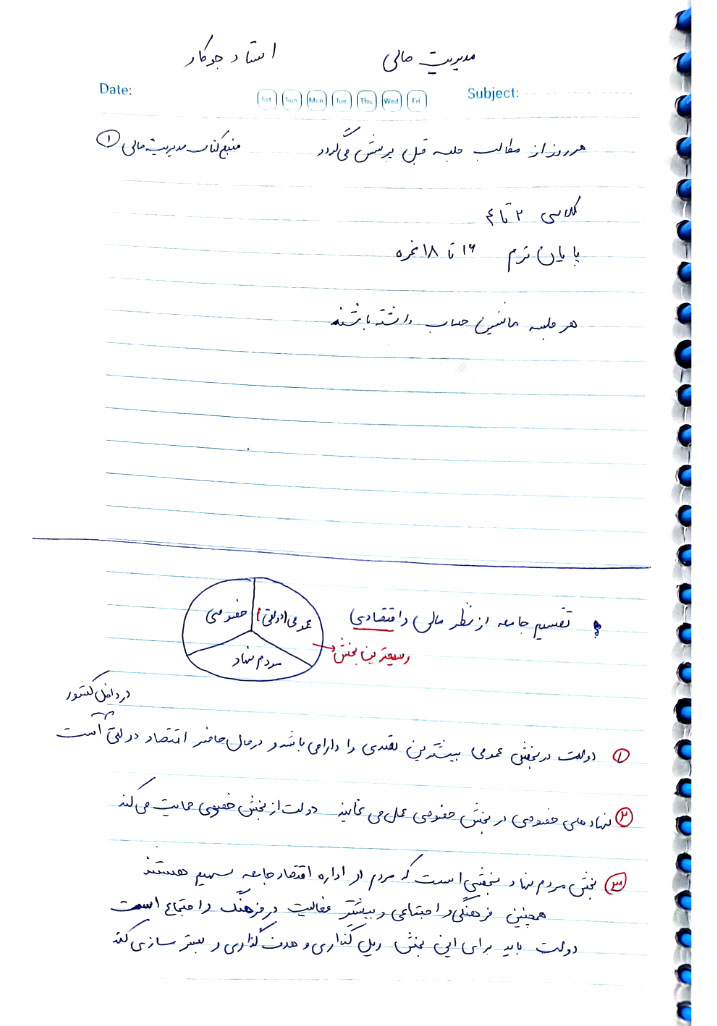 مدیریت مالی    استاد جوکار
Date: Sat Sun Mon Tue Thu Wed Fri Subject:
هر روز از مطالب جلسه قبل پرسش می‌گردد    منبع کتاب مدیریت مالی ۱
کلاسی ۲ تا ۴
پایان ترم ۱۶ تا ۱۸ نمره
هر جلسه ماشین حساب داشته باشند
تقسیم جامعه از نظر مالی و اقتصادی
عمومی (دولتی)
خصوصی
مردم نهاد
وسیعترین بخش
در داخل کشور
۱ دولت در بخش عمومی بیشترین نقدی را دارا می باشد و در حال حاضر اقتصاد دولتی است
۲ نهادهای خصوصی در بخش خصوصی عمل می نمایند دولت از بخش خصوصی حمایت می کند
۳ بخش مردم نهاد بخشی است که مردم در اداره اقتصاد جامعه سهیم هستند
همچنین فرهنگی و اجتماعی و بیشتر فعالیت در فرهنگ و اجتماع است
دولت باید برای این بخش ریل گذاری و هدف گذاری و بستر سازی کند